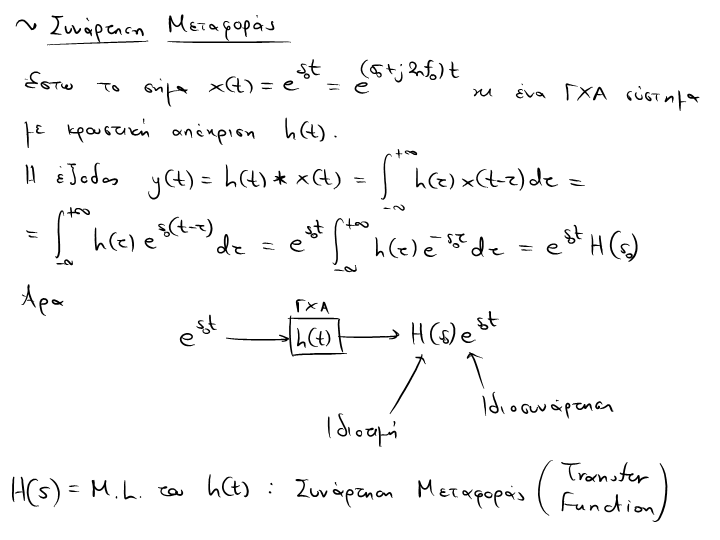 ~ Συνάρτηση Μεταφοράς
Έστω το σήμα x(t) = e^{s₀t} = e^{(σ+j2πf₀)t} κι ένα ΓΧΑ σύστημα
με κρουστική απόκριση h(t).
Η έξοδος y(t) = h(t) * x(t) = ∫_{-∞}^{+∞} h(τ)x(t-τ)dτ =
= ∫_{-∞}^{+∞} h(τ) e^{s₀(t-τ)} dτ = e^{s₀t} ∫_{-∞}^{+∞} h(τ) e^{-s₀τ} dτ = e^{s₀t} H(s₀)
Άρα
ΓΧΑ
e^{s₀t} → h(t) → H(s₀)e^{s₀t}
Ιδιοσυνάρτηση
Ιδιοτιμή
H(s) = Μ.L. του h(t) : Συνάρτηση Μεταφοράς (Transfer Function)